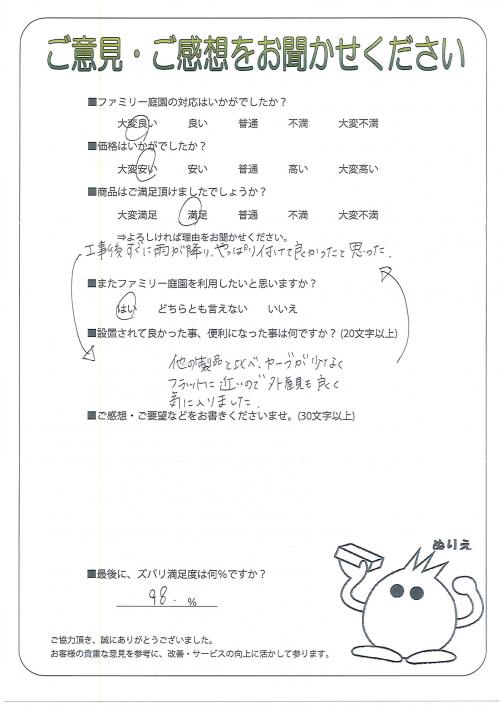 ご意見・ご感想をお聞かせください
■ファミリー庭園の対応はいかがでしたか？
大変良い 良い 普通 不満 大変不満
■価格はいかがでしたか？
大変安い 安い 普通 高い 大変高い
■商品はご満足頂けましたでしょうか？
大変満足 満足 普通 不満 大変不満
⇒よろしければ理由をお聞かせください。
工事後すぐに雨が降り、やっぱり付けて良かったと思った。
■またファミリー庭園を利用したいと思いますか？
はい どちらとも言えない いいえ
■設置されて良かった事、便利になった事は何ですか？(20文字以上)
他の製品と比べ、カーブが少なく
フラットに近いので外見も良く
気に入りました。
■ご感想・ご要望などをお書きくださいませ。(30文字以上)
ぬりえ
■最後に、ズバリ満足度は何％ですか？
98. %
ご協力頂き、誠にありがとうございました。
お客様の貴重な意見を参考に、改善・サービスの向上に活かして参ります。